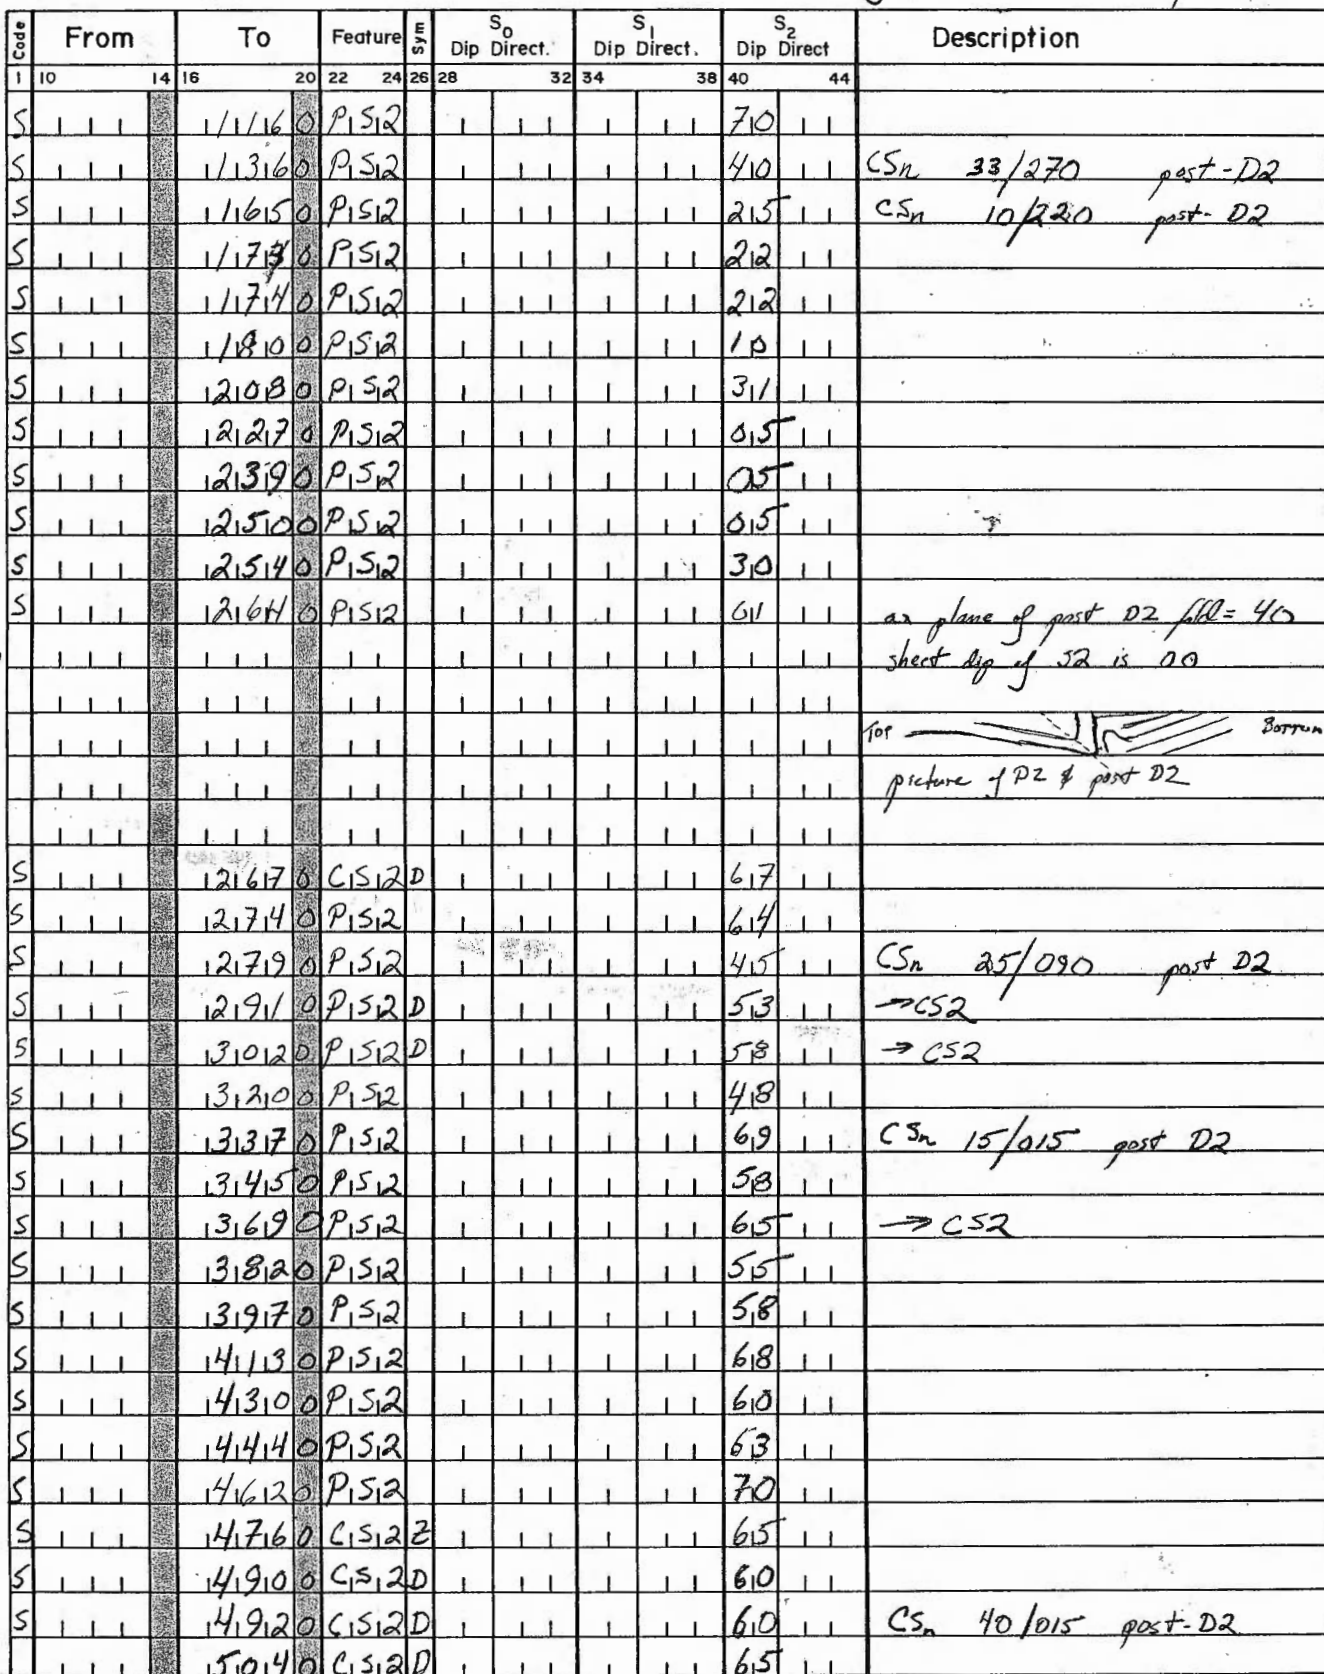 Code From To Feature Sym S0 Dip Direct. S1 Dip Direct. S2 Dip Direct Description
1 10 14 16 20 22 24 26 28 32 34 38 40 44
S 1160 PS2 70
S 1360 PS2 40 CSn 33/270 post-D2
S 1650 PS2 25 CSn 10/220 post-D2
S 1730 PS2 22
S 1740 PS2 22
S 1800 PS2 10
S 2080 PS2 31
S 2270 PS2 05
S 2390 PS2 05
S 2500 PS2 05
S 2540 PS2 30
S 2640 PS2 01 ax plane of post D2 fold = 40
sheet dip of S2 is 00
Top Bottom
picture of D2 & post D2
S 2670 CS2 D 67
S 2740 PS2 64
S 2790 PS2 45 CSn 25/090 post D2
S 2910 PS2 D 53 → CS2
S 3020 PS2 D 58 → CS2
S 3200 PS2 48
S 3370 PS2 69 CSn 15/015 post D2
S 3450 PS2 58
S 3690 PS2 65 → CS2
S 3820 PS2 55
S 3970 PS2 58
S 4130 PS2 68
S 4300 PS2 60
S 4440 PS2 63
S 4620 PS2 70
S 4760 CS2 Z 65
S 4900 CS2 D 60
S 4920 CS2 D 60 CSn 40/015 post-D2
5040 CS2 D 65